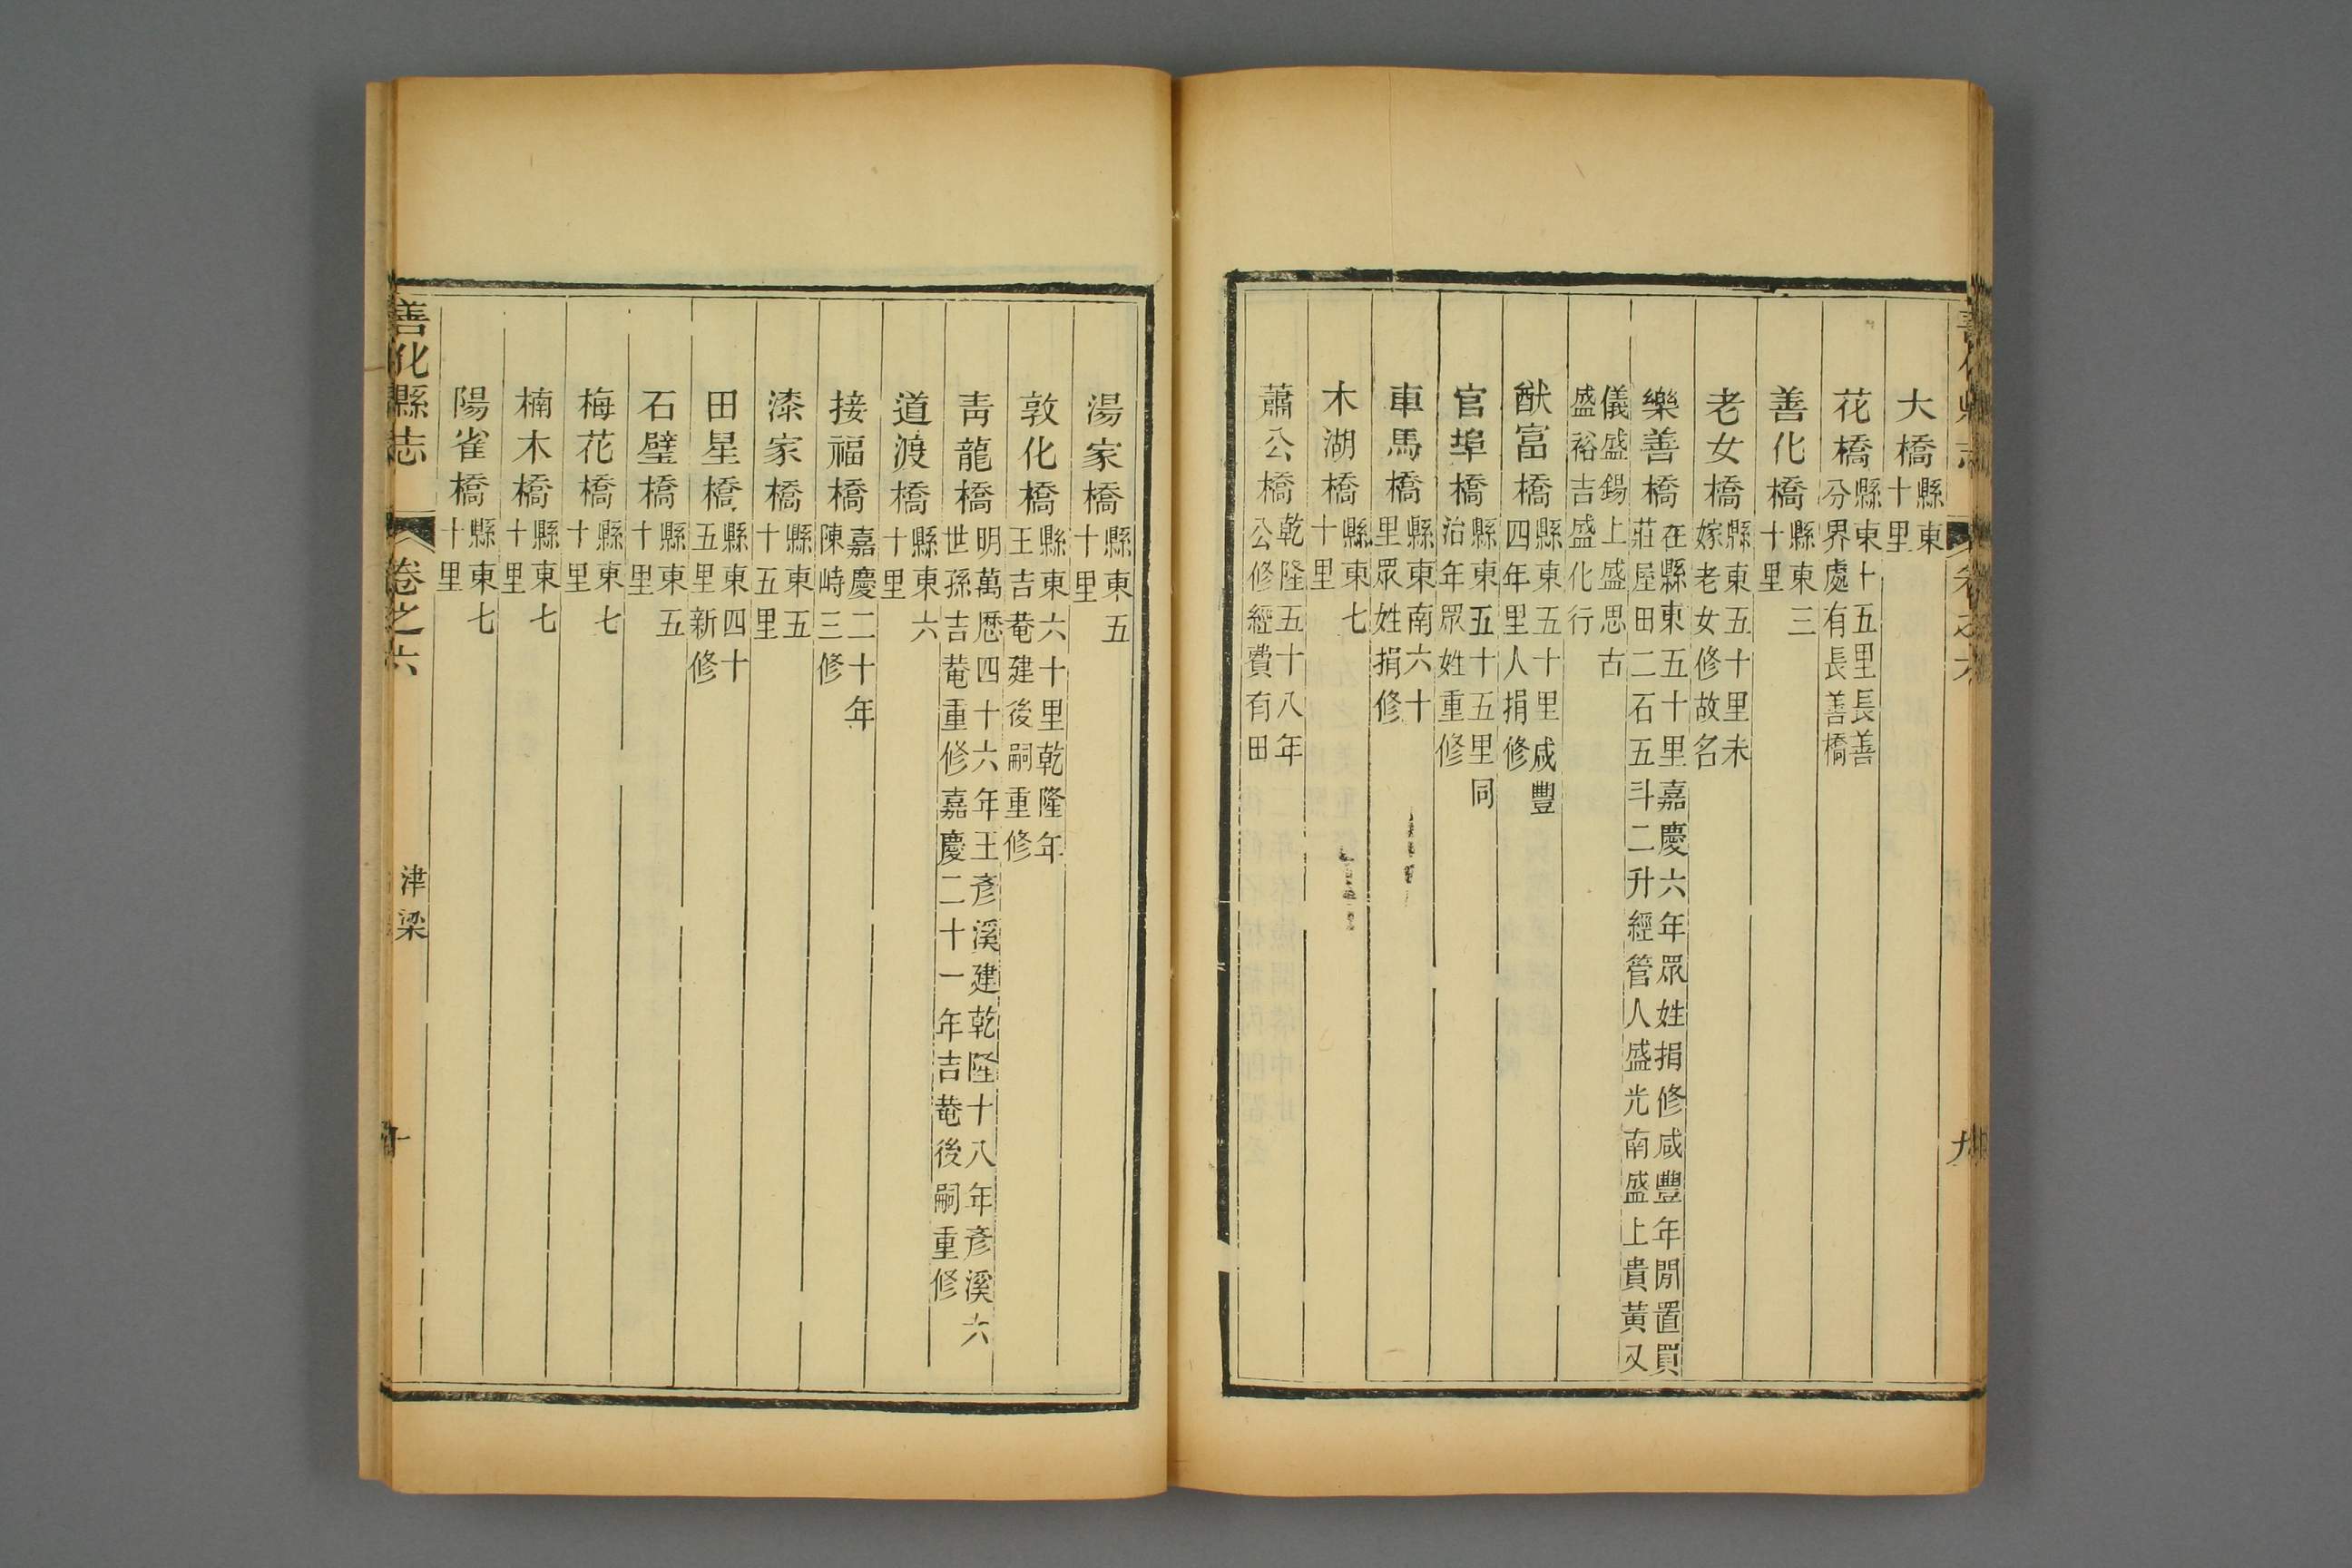 大橋縣東十里
花橋縣東十五里長善分界處有長善橋
善化橋縣東三十里
老女橋縣東五十里未嫁老女修故名
樂善橋在縣東五十里嘉慶六年眾姓捐修咸豐年閒置買莊屋田二石五斗二升經管人盛光南盛上貴黃又
儀盛錫上盛思古盛裕吉盛化行
猷富橋縣東五十里咸豐四年里人捐修
官埠橋縣東五十五里同治年眾姓重修
車馬橋縣東南六十里眾姓捐修
木湖橋縣東七十里
蕭公橋乾隆五十八年公修經費有田
湯家橋縣東五十里
敦化橋縣東六十里乾隆年王吉菴建後嗣重修
靑龍橋明萬歷四十六年王彥溪建乾隆十八年彥溪六世孫吉菴重修嘉慶二十一年吉菴後嗣重修
道渡橋縣東六十里
接福橋嘉慶二十年陳峙三修
漆家橋縣東五十五里
田星橋縣東四十五里新修
石璧橋縣東五十里
梅花橋縣東七十里
楠木橋縣東七十里
陽雀橋縣東七十里
善化縣志 卷之六 津梁 十